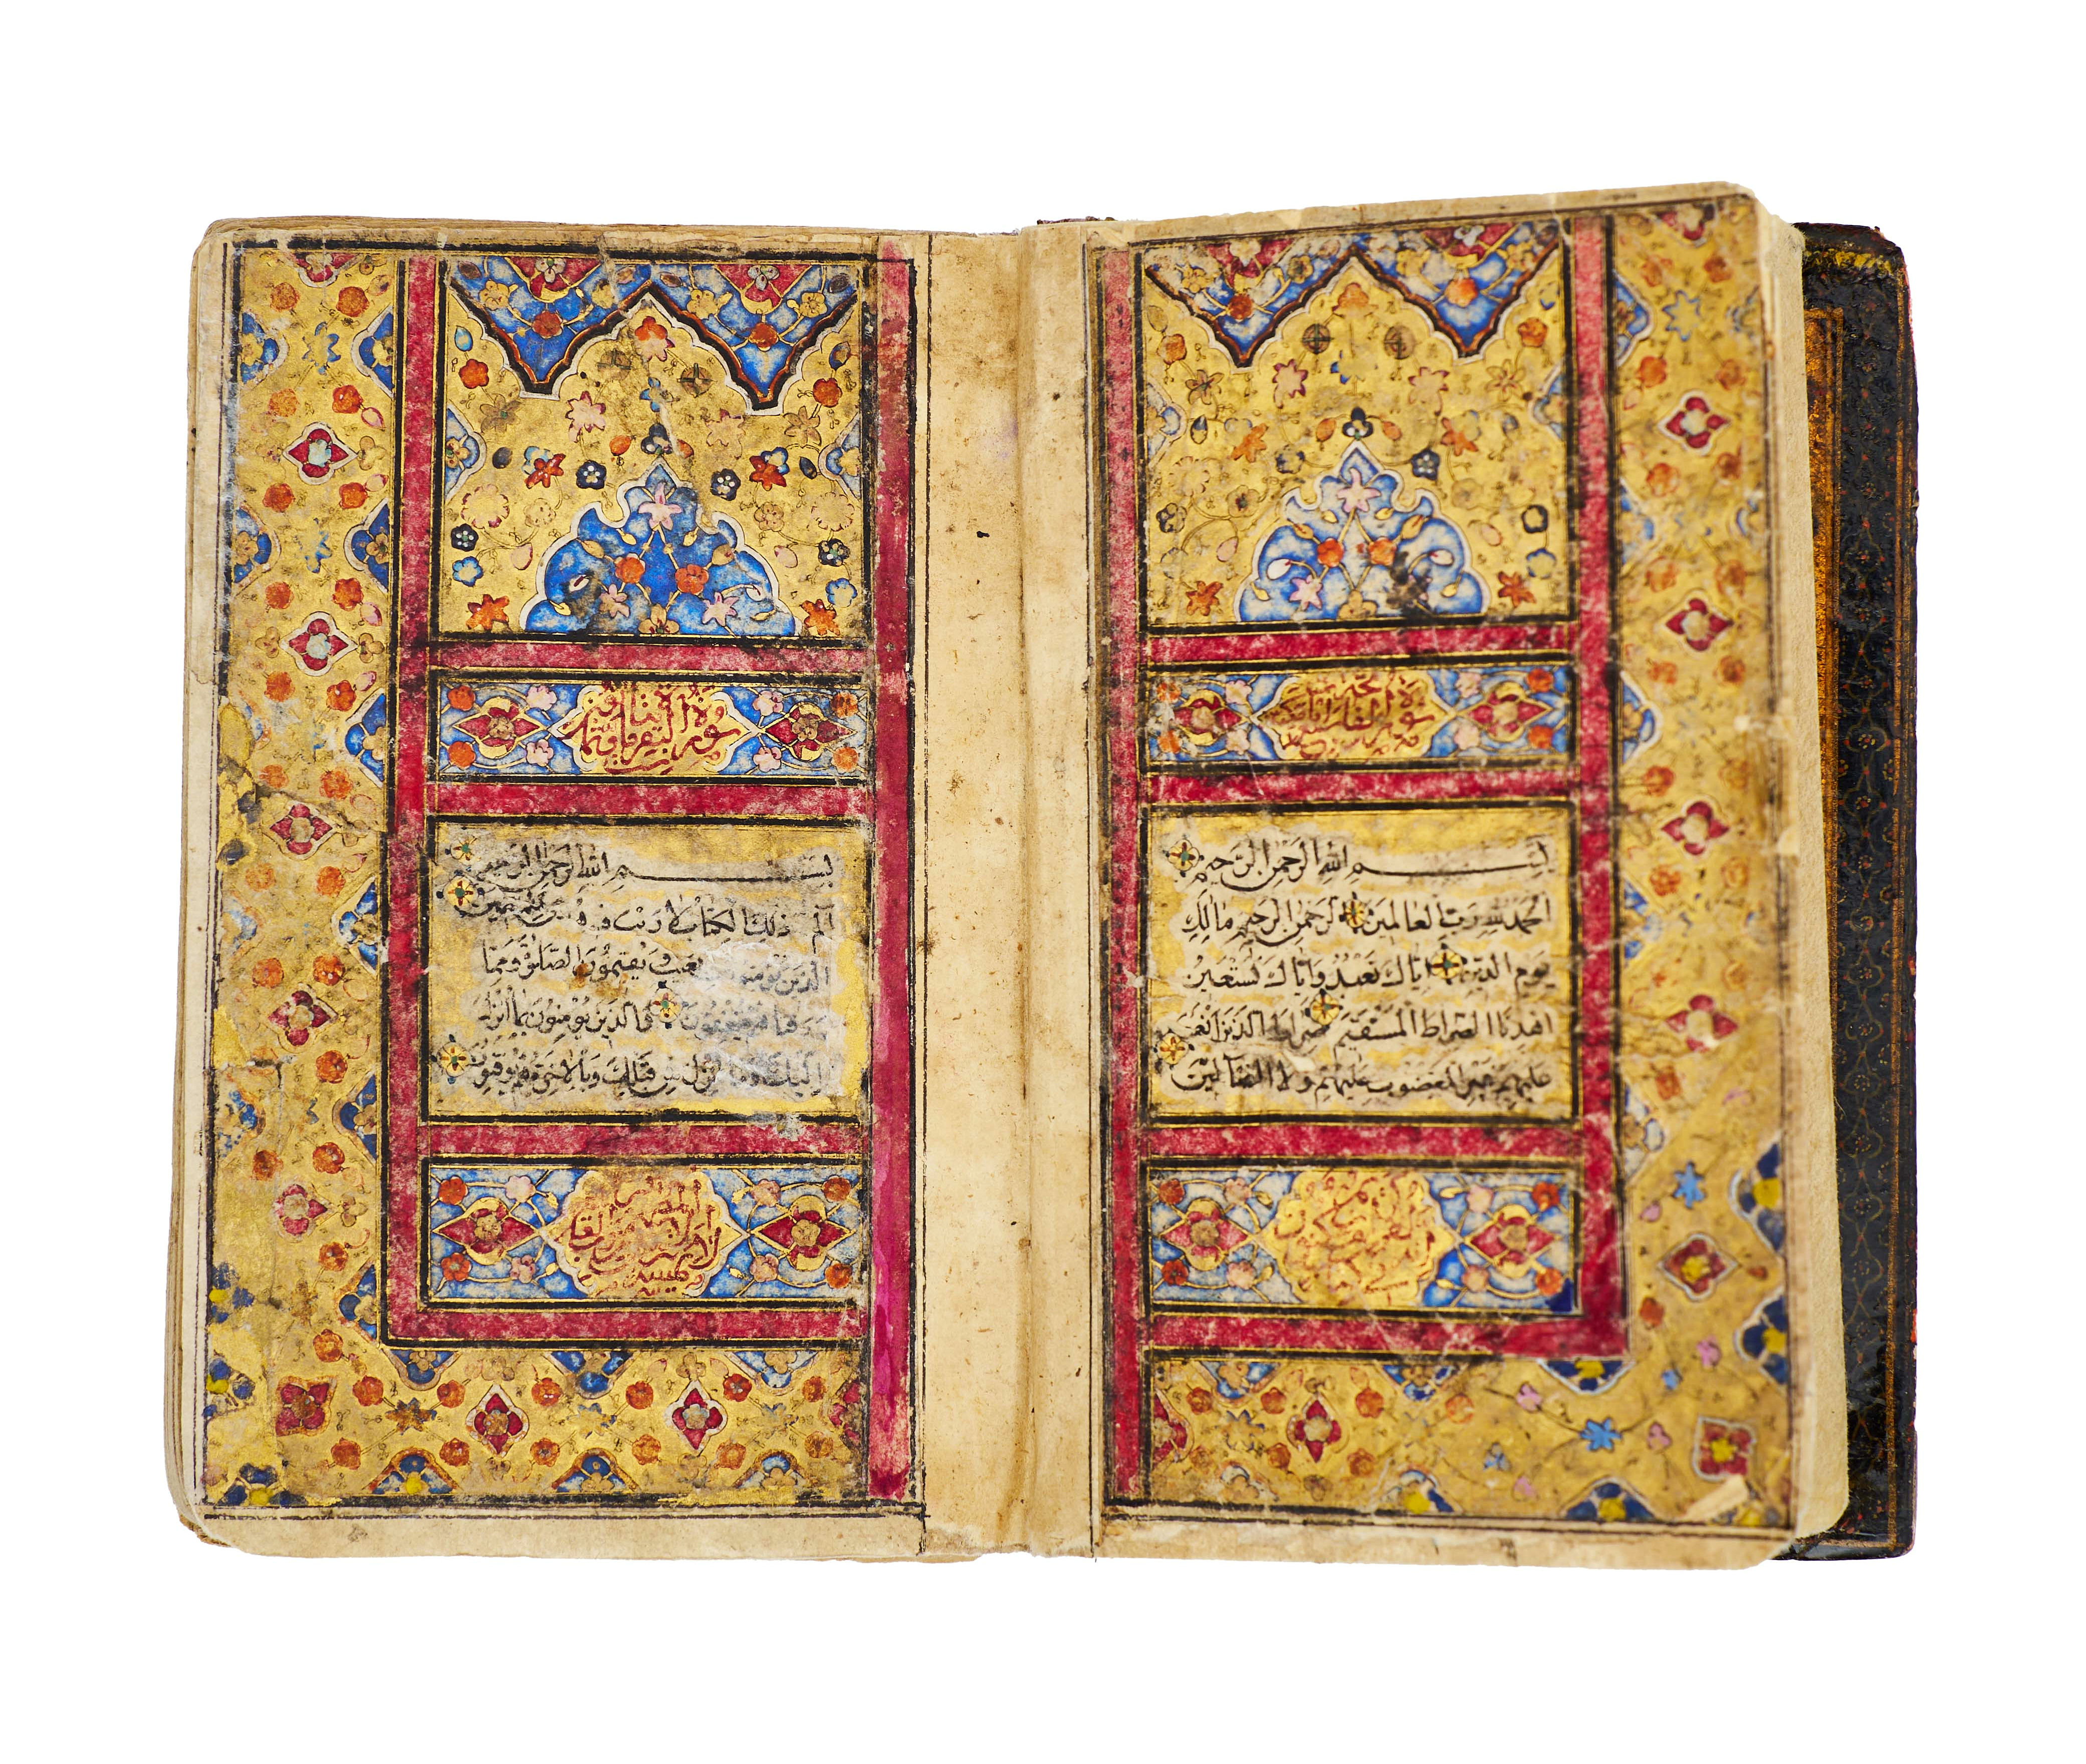 سورة الفاتحة
بسم الله الرحمن الرحيم
الحمد لله رب العالمين الرحمن الرحيم مالك
يوم الدين اياك نعبد واياك نستعين
اهدنا الصراط المستقيم صراط الذين انعمت
عليهم غير المغضوب عليهم ولا الضالين
سورة البقرة مائتان
بسم الله الرحمن الرحيم
الم ذلك الكتاب لا ريب فيه هدى للمتقين
الذين يؤمنون بالغيب ويقيمون الصلوة ومما
رزقناهم ينفقون والذين يؤمنون بما انزل
اليك وما انزل من قبلك وبالاخرة هم يوقنون